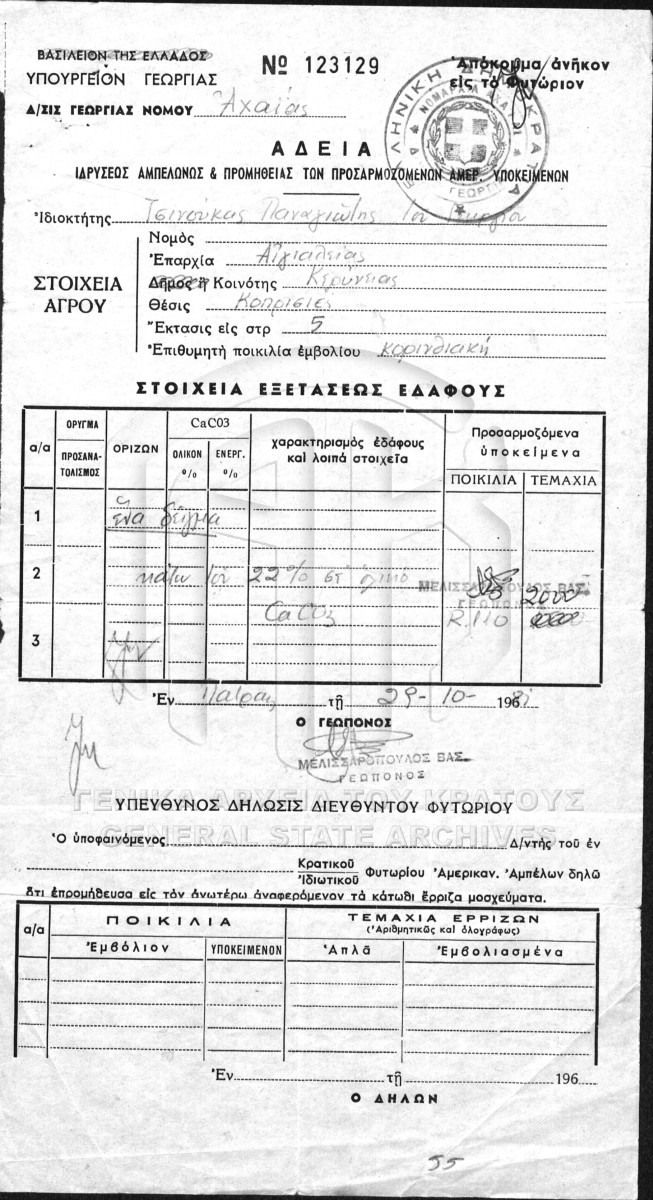 ΒΑΣΙΛΕΙΟΝ ΤΗΣ ΕΛΛΑΔΟΣ
ΥΠΟΥΡΓΕΙΟΝ ΓΕΩΡΓΙΑΣ
Δ/ΣΙΣ ΓΕΩΡΓΙΑΣ ΝΟΜΟΥ Ἀχαΐας
Nº 123129
Ἀπόκομμα ἀνῆκον
εἰς τὸ Φυτώριον
ΕΛΛΗΝΙΚΗ ΔΗΜΟΚΡΑΤΙΑ
ΑΔΕΙΑ
ΙΔΡΥΣΕΩΣ ΑΜΠΕΛΩΝΟΣ & ΠΡΟΜΗΘΕΙΑΣ ΤΩΝ ΠΡΟΣΑΡΜΟΖΟΜΕΝΩΝ ΑΜΕΡ. ΥΠΟΚΕΙΜΕΝΩΝ
Ἰδιοκτήτης Τσινούκας Παναγιώτης τοῦ Γεωργίου
ΣΤΟΙΧΕΙΑ ΑΓΡΟΥ
Νομὸς
Ἐπαρχία Αἰγιαλείας
Δῆμος ἢ Κοινότης Κερύνειας
Θέσις Κοπρισιές
Ἔκτασις εἰς στρ 5
Ἐπιθυμητὴ ποικιλία ἐμβολίου κορινθιακή
ΣΤΟΙΧΕΙΑ ΕΞΕΤΑΣΕΩΣ ΕΔΑΦΟΥΣ
α/α
ΟΡΥΓΜΑ
ΠΡΟΣΑΝΑ-
ΤΟΛΙΣΜΟΣ
ΟΡΙΖΩΝ
CaCO3
ΟΛΙΚΟΝ %
ΕΝΕΡΓ. %
χαρακτηρισμὸς ἐδάφους
καὶ λοιπά στοιχεῖα
Προσαρμοζόμενα
ὑποκείμενα
ΠΟΙΚΙΛΙΑ ΤΕΜΑΧΙΑ
1 ἕνα δεῖγμα
2 κάτω τοῦ 22%
ΜΕΛΙΣΣΑΡΟΠΟΥΛΟΣ ΒΑΣ.
ΓΕΩΠΟΝΟΣ
2000
CaCO3 R.110
3
Ἐν Πάτραις τῇ 29-10- 1968
Ο ΓΕΩΠΟΝΟΣ
ΜΕΛΙΣΣΑΡΟΠΟΥΛΟΣ ΒΑΣ.
ΓΕΩΠΟΝΟΣ
ΓΕΝΙΚΑ ΑΡΧΕΙΑ ΤΟΥ ΚΡΑΤΟΥΣ
ΥΠΕΥΘΥΝΟΣ ΔΗΛΩΣΙΣ ΔΙΕΥΘΥΝΤΟΥ ΦΥΤΩΡΙΟΥ
GENERAL STATE ARCHIVES
Ὁ ὑποφαινόμενος Δ/ντὴς τοῦ ἐν
Κρατικοῦ
Ἰδιωτικοῦ Φυτωρίου Ἀμερικαν. Ἀμπέλων δηλῶ
ὅτι ἐπρομήθευσα εἰς τὸν ἀνωτέρω ἀναφερόμενον τὰ κάτωθι ἔρριζα μοσχεύματα.
α/α
ΠΟΙΚΙΛΙΑ
ΤΕΜΑΧΙΑ ΕΡΡΙΖΩΝ
(Ἀριθμητικῶς καὶ ὁλογράφως)
Ἐμβόλιον ΥΠΟΚΕΙΜΕΝΟΝ Ἁπλᾶ Ἐμβολιασμένα
Ἐν τῇ 196
Ο ΔΗΛΩΝ
55